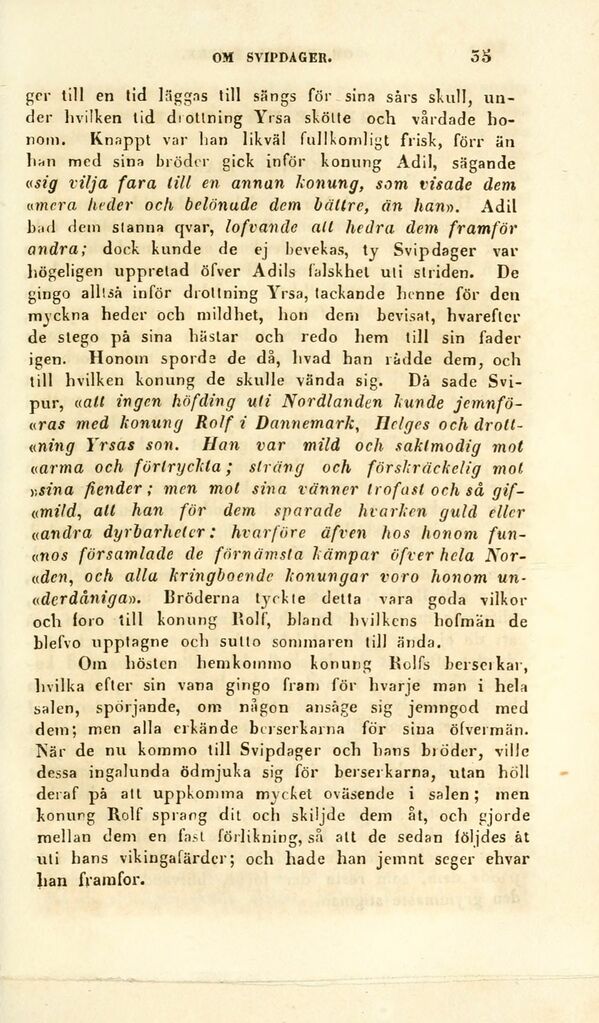 OM SVIPDAGER. 35
ger till en tid läggas till sängs för sina sårs skull, un-
der hvilken tid drottning Yrsa skötte och vårdade ho-
nom. Knappt var han likväl fullkomligt frisk, förr än
han med sina bröder gick inför konung Adil, sägande
«sig vilja fara till en annan konung, som visade dem
«mera heder och belönade dem bättre, än han». Adil
bad dem stanna qvar, lofvande att hedra dem framför
andra; dock kunde de ej bevekas, ty Svipdager var
högeligen uppretad öfver Adils falskhet uti striden. De
gingo alltså inför drottning Yrsa, tackande henne för den
myckna heder och mildhet, hon dem bevisat, hvarefter
de stego på sina hästar och redo hem till sin fader
igen. Honom sporde de då, hvad han rådde dem, och
till hvilken konung de skulle vända sig. Då sade Svi-
pur, «att ingen höfding uti Nordlanden kunde jemnfö-
«ras med konung Rolf i Dannemark, Helges och drott-
«ning Yrsas son. Han var mild och saktmodig mot
«arma och förtryckta; sträng och förskräckelig mot
»sina fiender; men mot sina vänner trofast och så gif-
«mild, att han för dem sparade hvarken guld eller
«andra dyrbarheter: hvarföre äfven hos honom fun-
«nos församlade de förnämsta kämpar öfver hela Nor-
«den, och alla kringboende konungar voro honom un-
«derdåniga». Bröderna tyckte detta vara goda vilkor
och foro till konung Rolf, bland hvilkens hofmän de
blefvo upptagne och sutto sommaren till ända.
Om hösten hemkommo konung Rolfs berserkar,
hvilka efter sin vana gingo fram för hvarje man i hela
salen, spörjande, om någon ansåge sig jemngod med
dem; men alla erkände berserkarna för sina öfvermän.
När de nu kommo till Svipdager och hans bröder, ville
dessa ingalunda ödmjuka sig för berserkarna, utan höll
deraf på att uppkomma mycket oväsende i salen; men
konung Rolf sprang dit och skiljde dem åt, och gjorde
mellan dem en fast förlikning, så att de sedan följdes åt
uti hans vikingafärder; och hade han jemnt seger ehvar
han framfor.